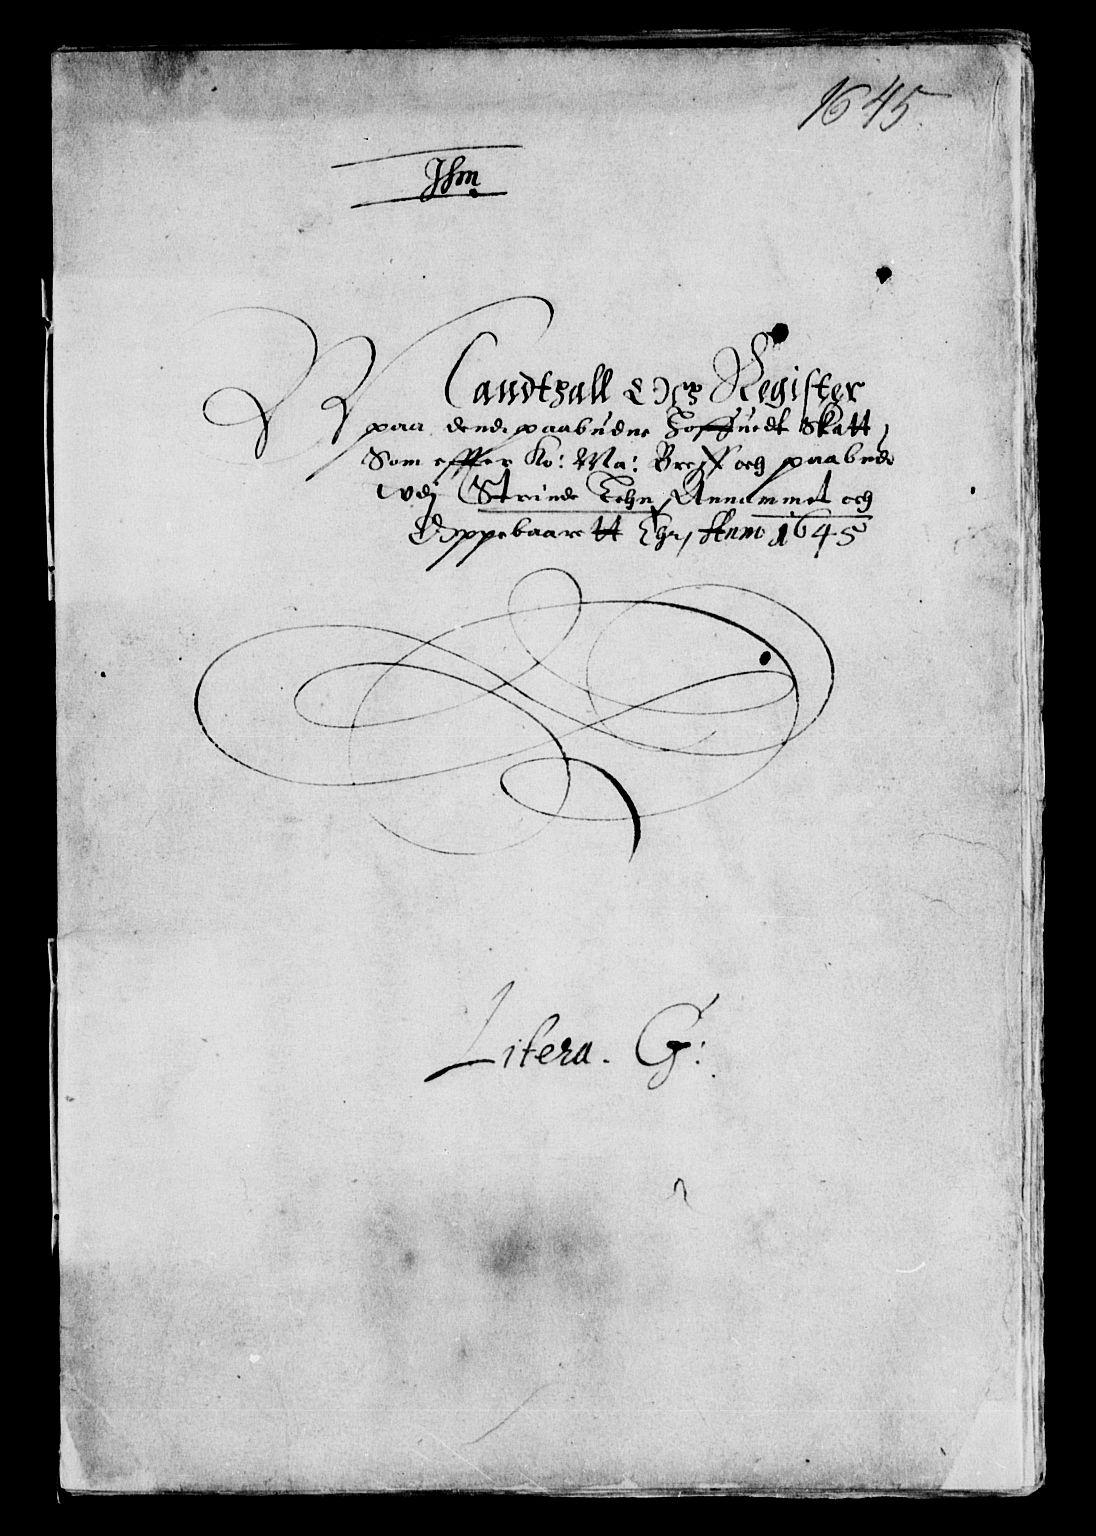 1645.
Ihm
Mandtall Och Register
paa dend paabudne Hoffuedt Skatt,
Som effter Ko: Ma: Breff och paabud
Vdj Strinde Lehn Annammet och
Oppebaarett Ehr, Anno 1645
Litera. G: